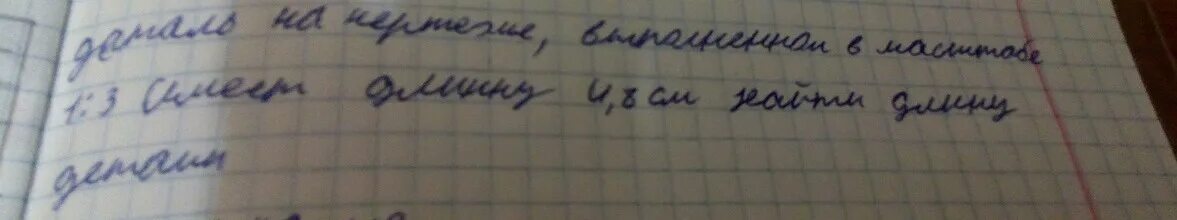 деталь на чертеже, выполненном в масштабе
1:3 имеет длинну 4,8 см найти длину
детали